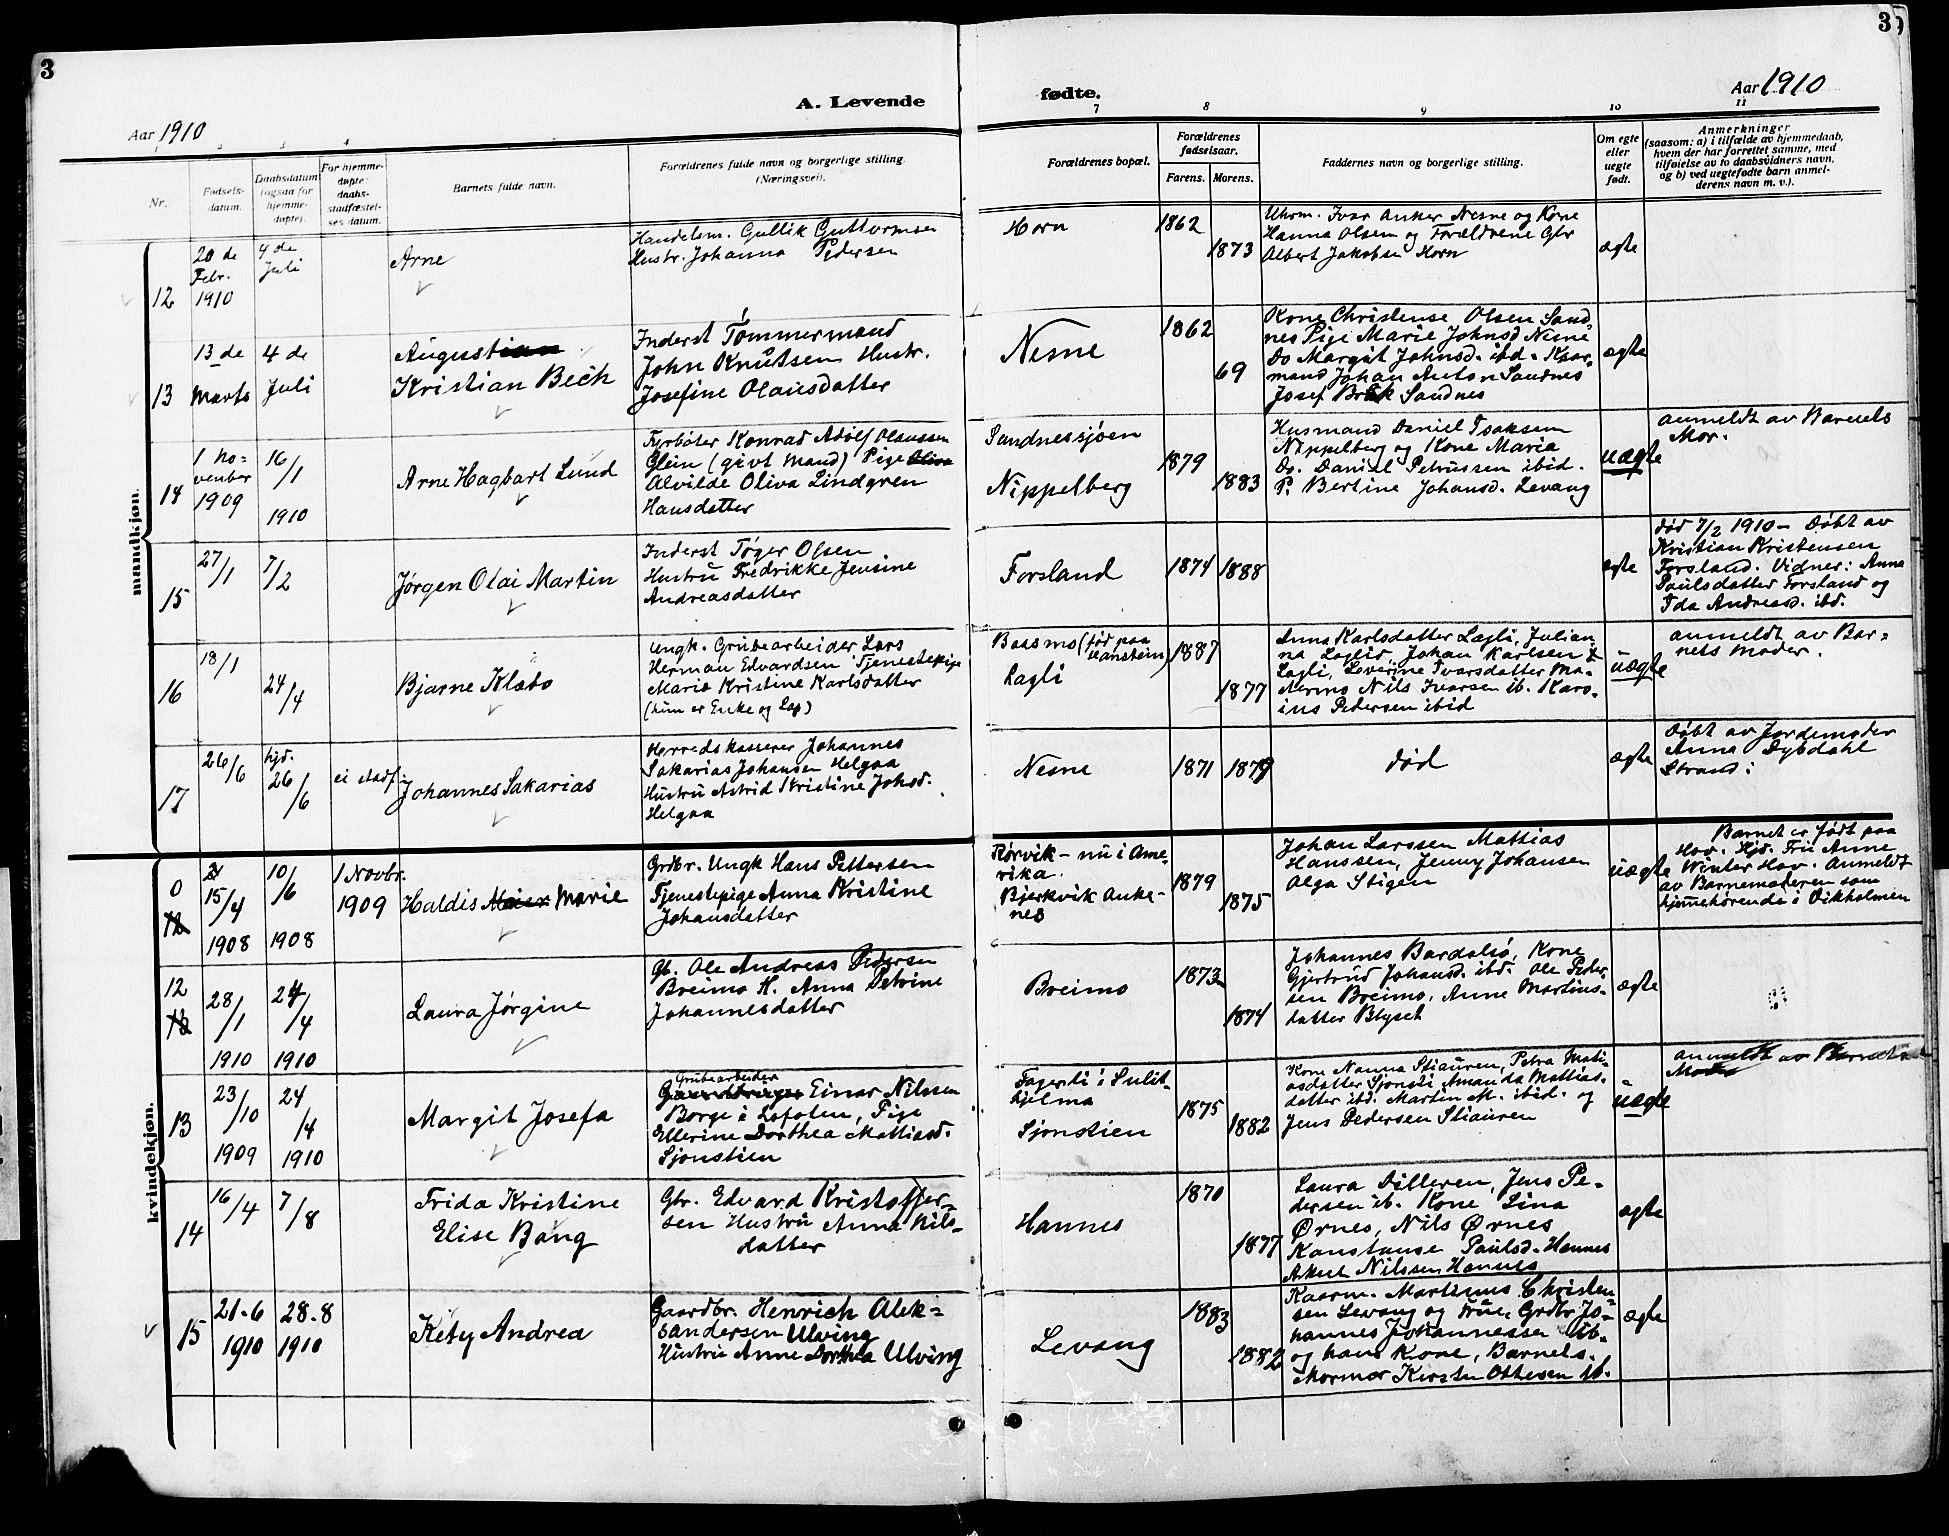 3
A. Levende
Aar 1910
2
3
4
Nr.
Fødsels-
datum.
Daabsdatum
(ogsaa for
hjemme-
døpte).
For hjemme-
døpte:
daabs-
stadfæstel-
ses datum.
Barnets fulde navn.
Forældrenes fulde navn og borgerlige stilling.
(Næringsvei).
3
fødte.
Aar 1910
7
8
9
10
11
Forældrenes bopæl.
Forældrenes
fødselsaar.
Farens.
Morens.
Faddernes navn og borgerlige stilling.
Om egte
eller
uegte
født.
Anmerkninger
(saasom: a) i tilfælde av hjemmedaab,
hvem der har forrettet samme, med
tilføielse av to daabsvidners navn,
og b) ved uegtefødte barn anmel-
derens navn m. v.).
mandkjøn.
12
20 de
Febr.
1910
4 de
Juli
Arne
Handelsm. Gullik Guttormsen
Hustr. Johanna Pedersen
Horn
1862
1873
Uhrm. Ivar Anker Nesne og Kone
Hanna Olsen og Forældrene Gbr
Albert Jakobsen Horn
ægte
13
13 de
Marts
4 de
Juli
Augustian
Kristian Bech
Inderst Tømmermand
John Knutsen Hustr.
Josefine Olausdatter
Nesne
1862
69
Kone Christense Olsen Sand
nes Pige Marie Johnsd Nesne
Do Margit Johnsd. ibd. Kaar-
mand Johan Anton Sandnes
Josef Sandnes
ægte
14
1 No-
venber
1909
16/1
1910
Arne Hagbart Lund
Fyrbøter Konrad Adolf Olaussen
Glein (givt mand) Pige Oliva
Alvilde Oliva Lindgren
Hansdatter
Sandnessjøen
Nippelberg
1879
1883
Husmand Daniel Isaksen
Nippelberg og Kone Maria
Do. Daniel Petrussen ibid.
P. Bertine Johansd. Levang
uægte
anmeldt av Barnets
Mor.
15
27/1
7/2
Jørgen Olai Martin
Inderst Tøger Olsen
Hustru Fredrikke Jensine
Andreasdatter
Forsland
1874
1888
ægte
død 7/2 1910 - Døbt av
Kristian Kristensen
Forsland. Vidner: Anna
Paulsdatter Forsland og
Ida Andreasd. ibd.
16
18/1
24/4
Bjarne Klæbo
Ungk. Grubearbeider Lars
Herman Edvardsen Tjenestepige
Marie Kristine Karlsdatter
(hun er Enke og Lap)
Baasmo (død paa
Ranstein)
Lagli
1887
1877
Anna Karlsdatter Lagli, Julian
na Laglid Johan Karlsen
Lagli, Leverine Ivarsdatter Ma-
Nils Ivarsen ib. Karo-
ine Pedersen ibid
uægte
anmeldt av Bar-
nets moder.
17
26/6
hjd.
26/6
ei stadf.
Johannes Sakarias
Herredskasserer Johannes
Sakarias Johansen Helgaa
Hustru Astrid Kristine Johsd.
Helgaa
Nesne
1871
1879
død
ægte
Døbt av Jordemoder
Anna Dybdahl
Strand.
kvindekjøn.
0
12
15/4
1908
10/6
1908
1 Novbr.
1909
Haldis Marie
Grdbr. Ungk Hans Pettersen
Tjenestepige Anna Kristine
Johansdatter
Rørvik - nu i Ame-
rika.
Bjerkvik Anke-
nes
1879
1875
Johan Larssen Mattias
Hanssen, Jenny Johansen
Olga Stigen
uægte
Barnet er født paa
Hov. Hjd. Fru Anne
Winter Hov. Anmeldt
av Barnemoderen som
hjemmehørende i Vikholmen
12
13
28/1
1910
24/4
1910
Laura Jørgine
Gb. Ole Andreas Pedersen
Breimo H. Anna Petrine
Johannesdatter
Breimo
1873
1874
Johannes Bardalsø, Kone
Gjertrud Johansd. ibd. Ole Peder-
sen Breimo, Anne Martins-
datter Blyset
ægte
13
23/10
1909
24/4
1910
Margit Josefa
Grubearbeider
Einar Nilssen
Borge i Lofoten, Pige
Ellerine Dorthea Mattiasd.
Sjonstien
Fagerli i Sulit-
hjelma
Sjonstien
1875
1882
Kone Nanna Stiauren, Petra Mati-
asdatter Sjonsti Amanda Mattias-
datter ibd. Martin M. ibid. og
Jens Pedersen Stiauren
uægte
anmeldt av Barnets
Moder
14
16/4
7/8
Frida Kristine
Elise Bang
Gbr. Edvard Kristoffer-
sen Hustru Anna Nils-
datter
Hannes
1870
1877
Laura Dilleren, Jens Pe-
dersen ib. Kone Lina
Ørnes, Nils Ørnes
Konstanse Paulsd. Hannes
Aksel Nilssen Hannes
ægte
15
21-6
1910
28-8
1910
Kety Andrea
Gaardbr. Henrich Alek-
sandersen Ulving
Hustru Anne Dorthea Ulving
Levang
1883
1882
Kaarm. Martinus Christen-
sen Levang og Frue, Grdbr Jo-
hannes Johannessen ib.
og hans Kone, Barnets
Mormor Kirsten Ottesen ib.
ægte